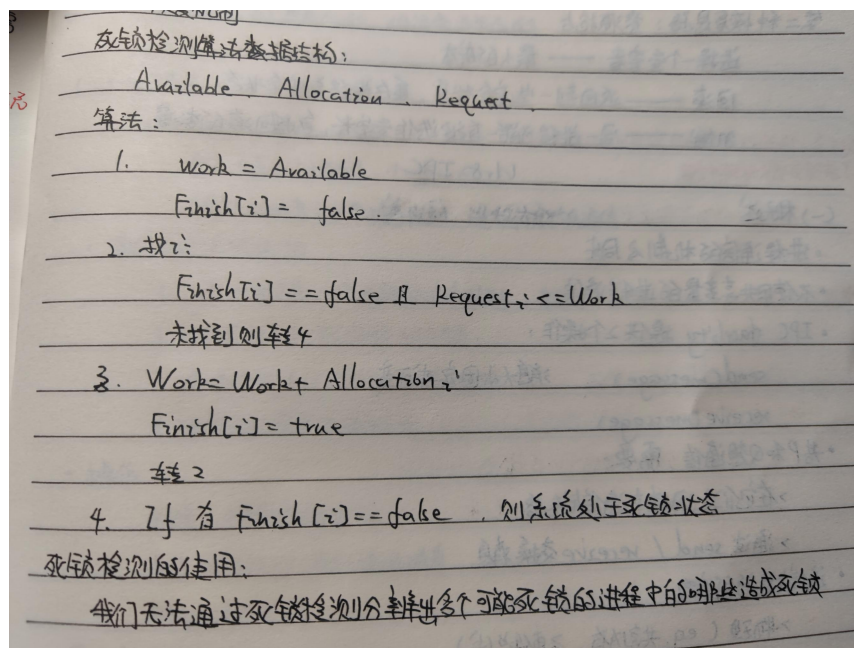 死锁检测算法数据结构:
Available、Allocation、Request.
算法:
1. Work = Available
Finish[i] = false.
2. 找i:
Finish[i] == false 且 Request i <= Work
未找到则转4
3. Work = Work + Allocation i
Finish[i] = true
转2
4. If 有 Finish[i] == false, 则系统处于死锁状态
死锁检测的使用:
我们无法通过死锁检测分辨出多个可能死锁的进程中的哪些造成死锁